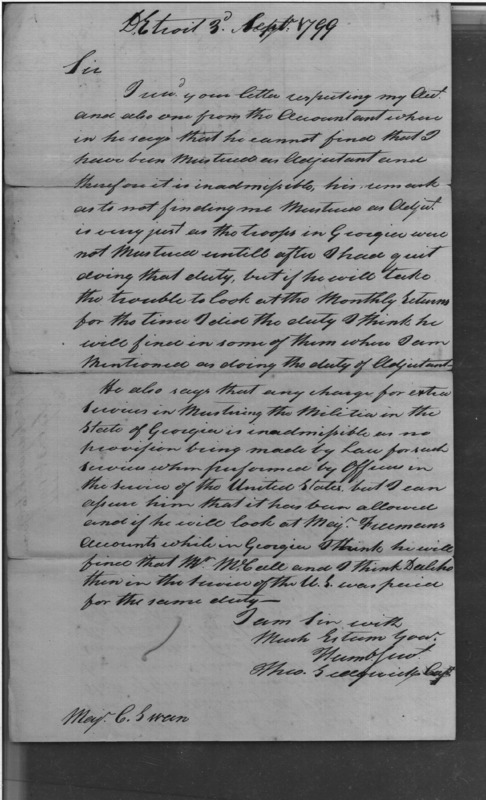 Detroit 3d. Sept. 1799
Sir
I recd your letter respecting my Acct.
and also one from the Accountant where
in he says that he cannot find that I
have been Mustered as Adjutant and
therefore it is inadmissible, his remark
as to not finding me Mustered as Adjt.
is very just as the troops in Georgia were
not Mustered untill after I had quit
doing that duty, but if he will take
the trouble to look at the Monthly returns
for the time I did the duty I think he
will find in some of them where I am
Mentioned as doing the duty of Adjutant
He also says that any charge for extra
Services in Mustering the Militia in the
State of Georgia is inadmissible as no
provision being made by Law for such
Service when performed by Officers in
the Service of the United States, but I can
assure him that it has been allowed
and if he will look at Majr. Freemans
Accounts while in Georgia I think he will
find that Mr. McCall and I think
then in the Service of the U.S. was paid
for the same duty—
I am Sir with
Much Esteem Your
Humb Servt
Theo. Sedgwick Capt.
Majr. C. Swan